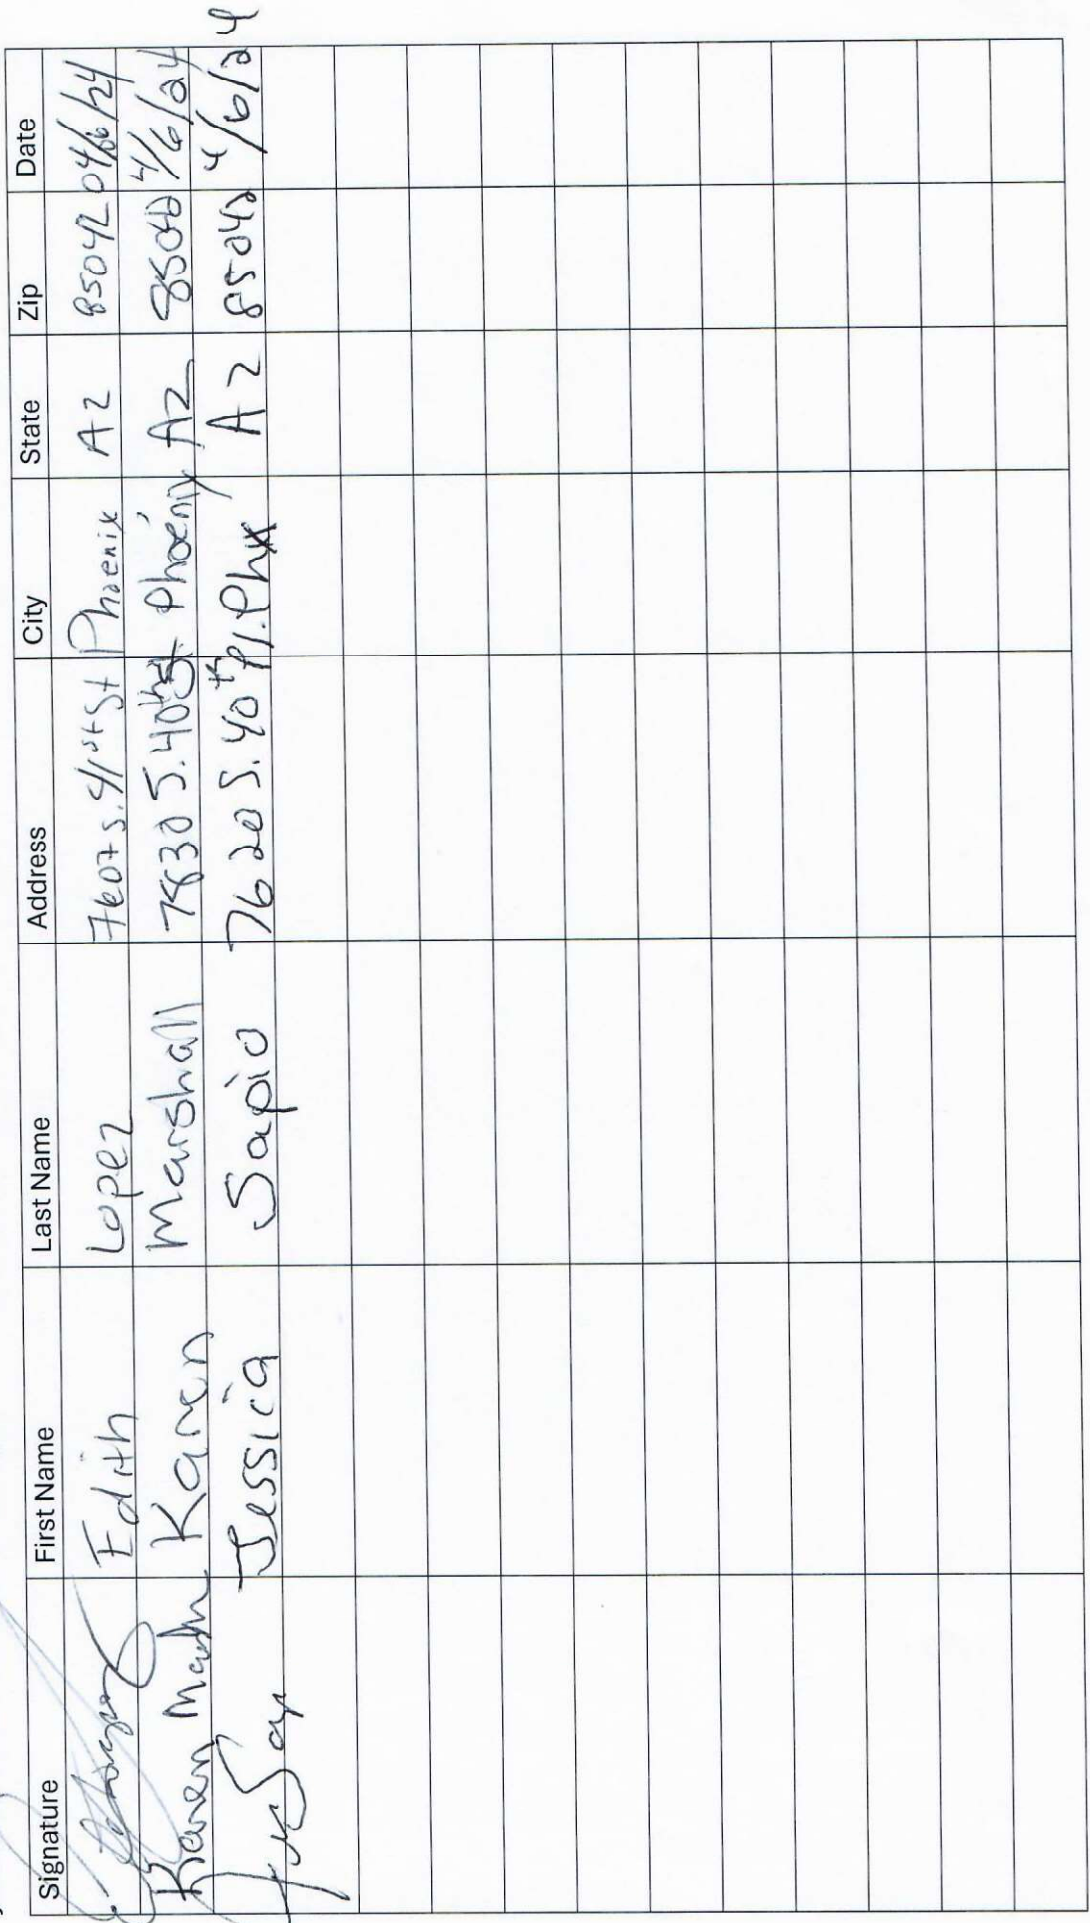 Signature First Name Last Name Address City State Zip Date
Edith Lopez 7607 s. 41st St Phoenix AZ 85042 04/06/24
Karen Marshall Karen Marshall 7830 S. 40th St Phoenix AZ 85042 4/6/24
Jessica Sapio 7620 S. 40th Pl. Phx AZ 85042 4/6/24